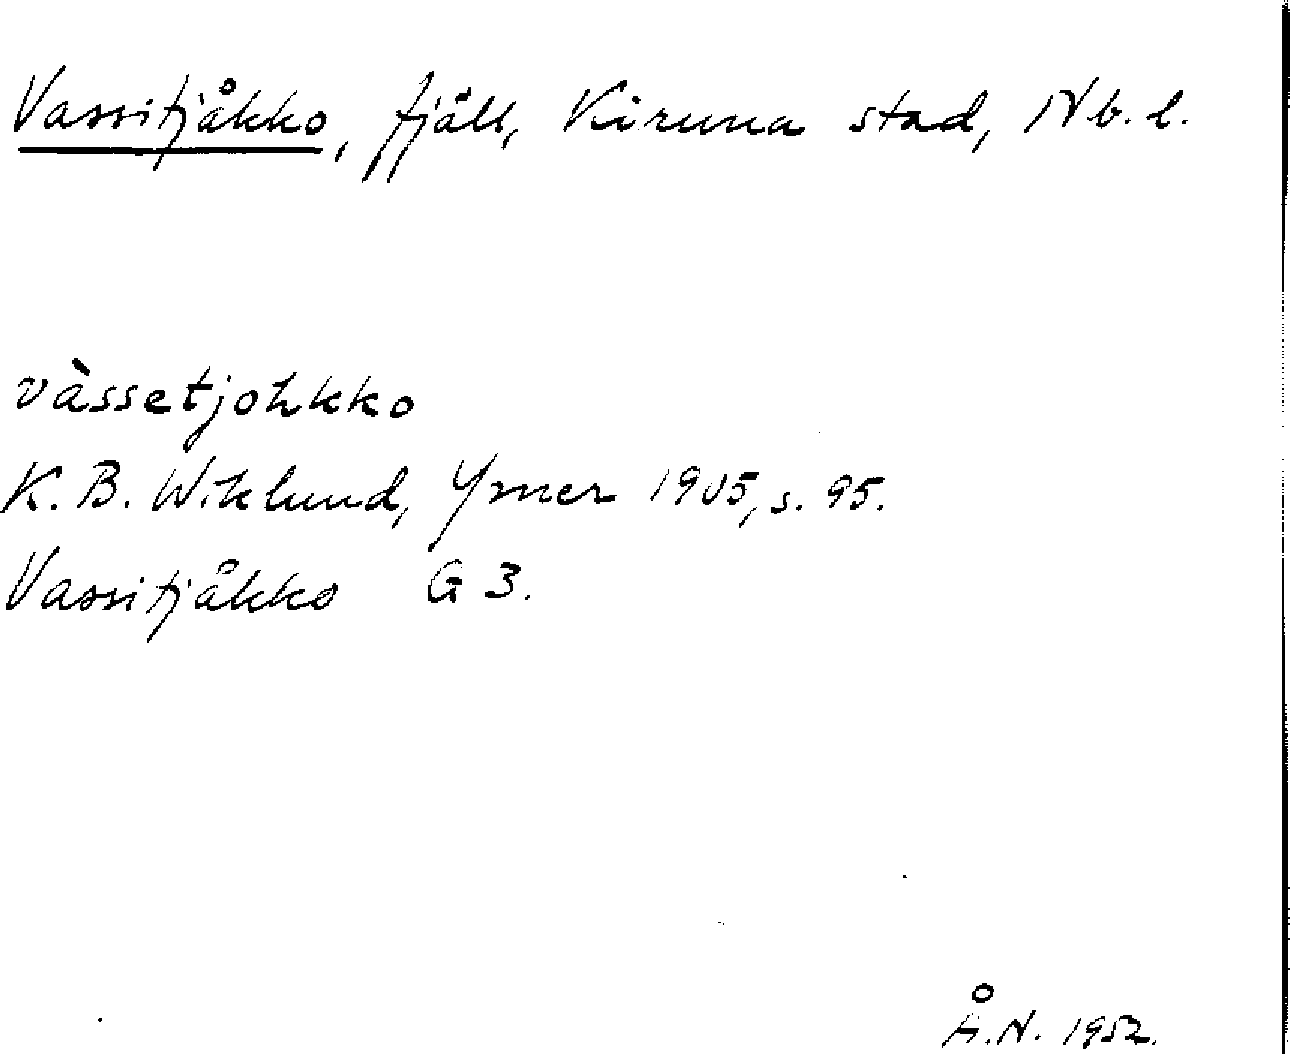 Vassitjåkko, fjäll, Kiruna stad, Nb. l.
vàssetjohkko
K. B. Wiklund, Ymer 1905, s. 95.
Vassitjåkko G 3.
Å. N. 1952.